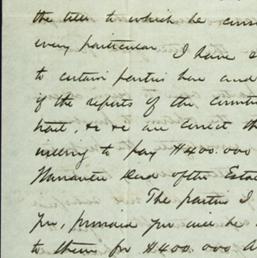 the titles to which he
every particular. I have
to certain parties here and
if the reports of the
tract, are correct th
willing to pay $400.000
Warrantee Deed of the Esta
The parties I
you, provided you will be
to them for $400.000